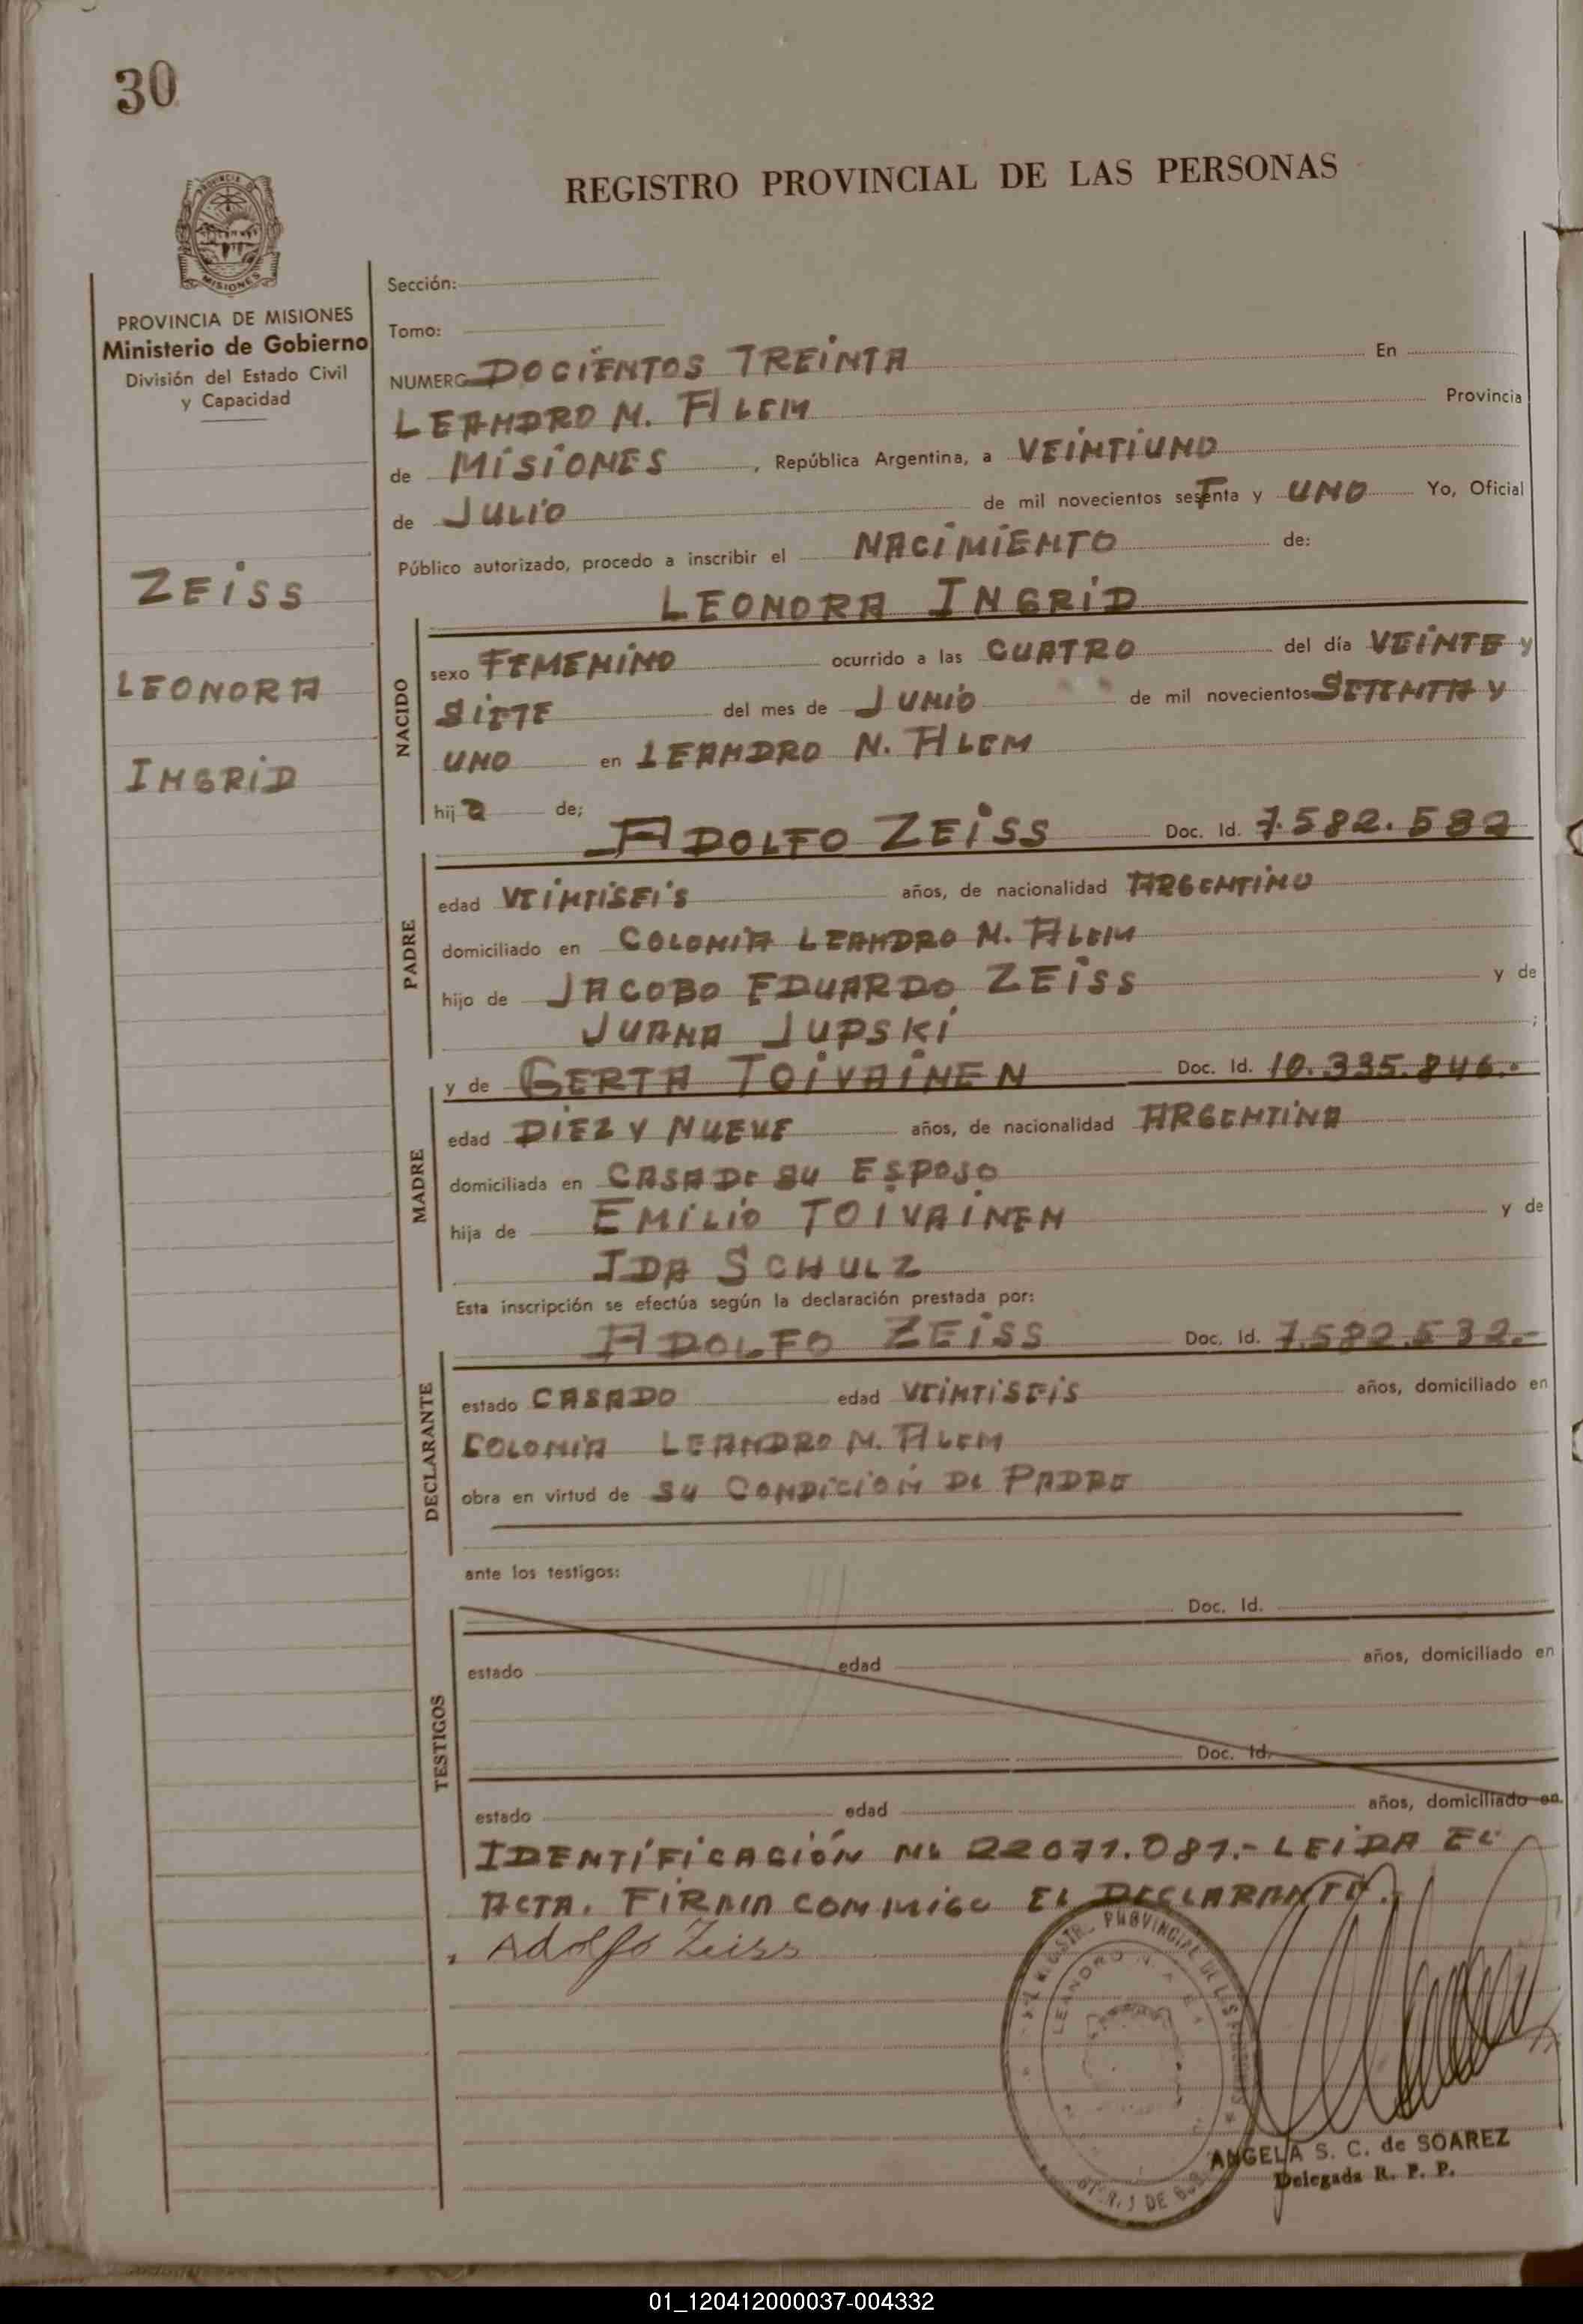 30
REGISTRO PROVINCIAL DE LAS PERSONAS
PROVINCIA DE MISIONES
Ministerio de Gobierno
División del Estado Civil
y Capacidad
ZEISS
LEONORA
INGRID
Sección:
Tomo:
NUMERO DOCIENTOS TREINTA En
LEANDRO N. ALEM Provincia
de MISIONES , República Argentina, a VEINTIUNO
de JULIO de mil novecientos setenta y UNO Yo, Oficial
Público autorizado, procedo a inscribir el NACIMIENTO de:
LEONORA INGRID
NACIDO
sexo FEMENINO ocurrido a las CUATRO del día VEINTE y
SIETE del mes de JUNIO de mil novecientos SETENTA Y
UNO en LEANDRO N. ALEM
hija de;
ADOLFO ZEISS Doc. Id. 7.582.532
PADRE
edad VEINTISEIS años, de nacionalidad ARGENTINO
domiciliado en COLONIA LEANDRO N. ALEM
hijo de JACOBO EDUARDO ZEISS y de
JUANA JUPSKI ;
y de GERTA TOIVAINEN Doc. Id. 10.335.846.-
MADRE
edad DIEZ Y NUEVE años, de nacionalidad ARGENTINA
domiciliada en CASA DE SU ESPOSO
hija de EMILIO TOIVAINEN y de
IDA SCHULZ
Esta inscripción se efectúa según la declaración prestada por:
ADOLFO ZEISS Doc. Id. 7.582.532.-
DECLARANTE
estado CASADO edad VEINTISEIS años, domiciliado en
COLONIA LEANDRO N. ALEM
obra en virtud de SU CONDICION DE PADRE
ante los testigos:
Doc. Id.
TESTIGOS
estado edad años, domiciliado en
Doc. Id.
estado edad años, domiciliado en
IDENTIFICACIÓN Nº 22071.081.- LEIDA EL
ACTA. FIRMA CONMIGO EL DECLARANTE.
Adolfo Zeiss
ANGELA S. C. de SOAREZ
Delegada R. P. P.
01_120412000037-004332